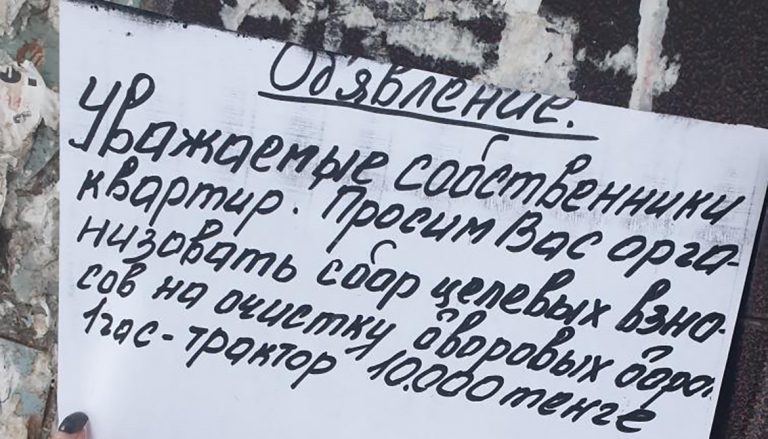 Объявление.
Уважаемые собственники
квартир. Просим Вас орга-
низовать сбор целевых взно-
сов на очистку дворовых дорог.
1час - трактор 10.000 тенге